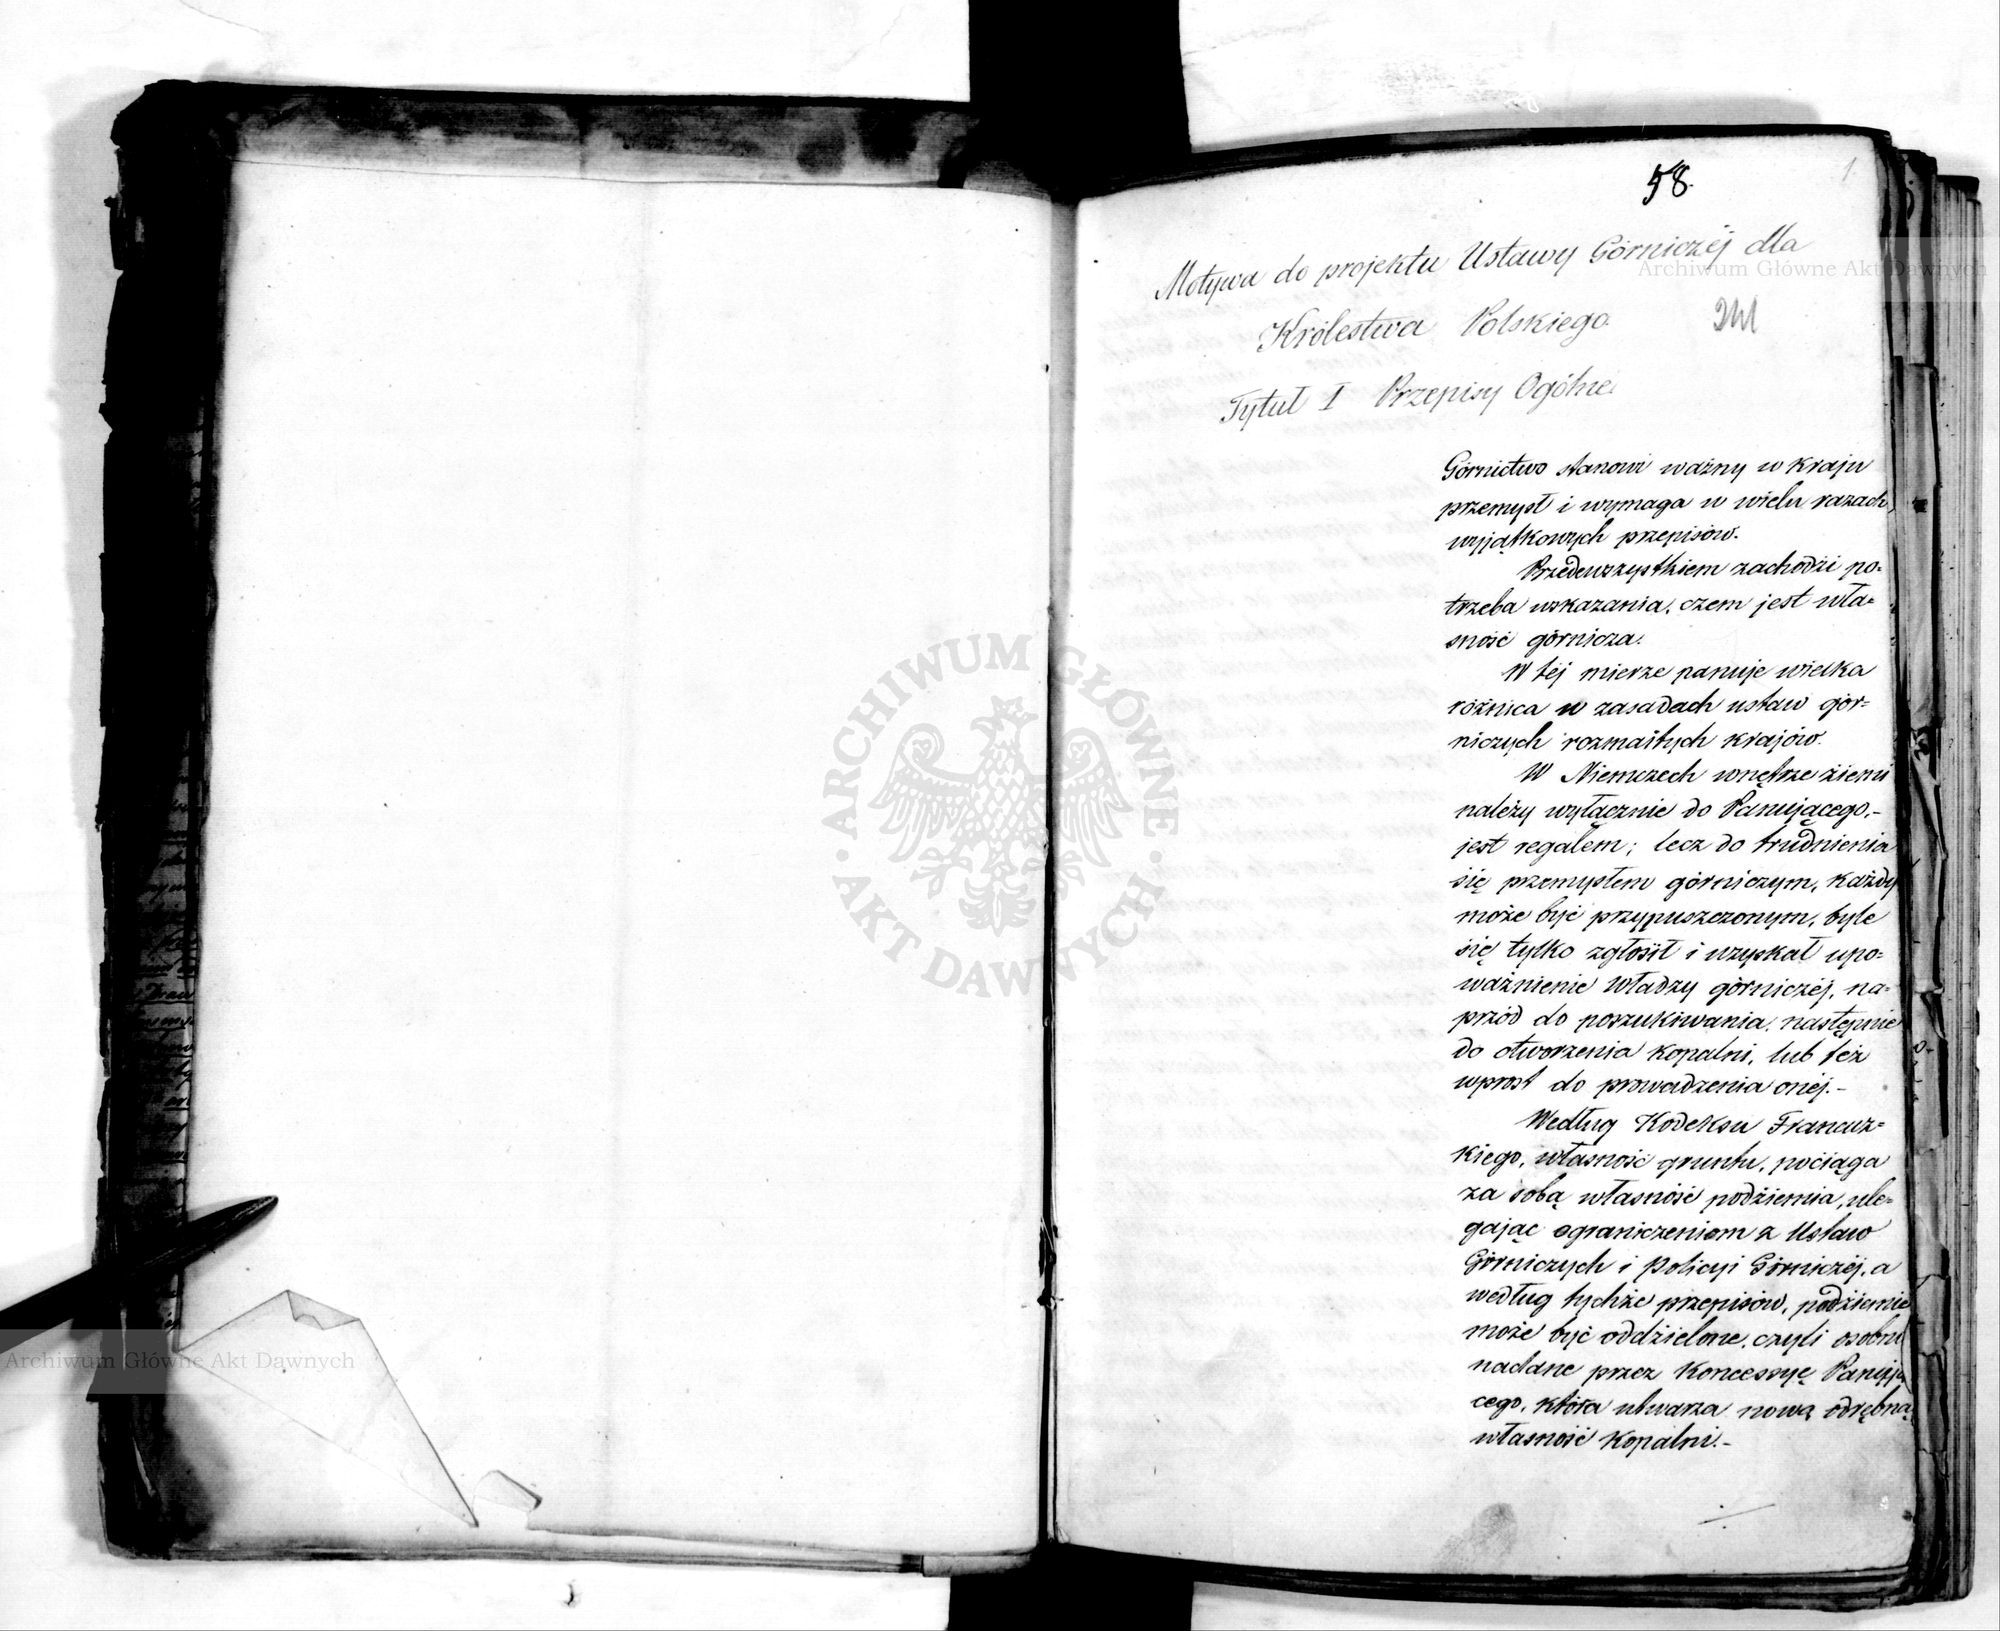 58.
1.
Motywa do projektu Ustawy Górniczéj dla
Królestwa Polskiego.
Tytuł I Przepisy Ogólne.
Górnictwo stanowi ważny w kraju
przemysł i wymaga w wielu razach
wyjątkowych przepisów.
Przedewszystkiem zachodzi po=
trzeba wskazania, czem jest wła=
sność górnicza.
W téj mierze panuje wielka
różnica w zasadach ustaw gór=
niczych rozmaitych krajów.
W Niemczech wnętrze ziemi
należy wyłącznie do Panującego,-
jest regałem; lecz do trudnienia
się przemysłem górniczym, każdy
może być przypuszczonym, byle
się tylko zgłosił i uzyskał upo=
ważnienie Władzy górniczéj, na=
przód do poszukiwania, następnie
do otworzenia kopalni, lub też
wprost do prowadzenia onéj.-
Według Kodeksu Francuz=
kiego, własność gruntu, pociąga
za sobą własność podziemia, ule=
gając ograniczeniom z Ustaw
Górniczych i Policyi Górniczéj, a
według tychże przepisów, podziemie
może być oddzielone, czyli osobno
nadane przez Koncessyę Panują
cego, która utwarza nową odrębną
własność kopalni.-
Archiwum Główne Akt Dawnych
Archiwum Główne Akt Dawnych
ARCHIWUM GŁÓWNE
AKT DAWNYCH